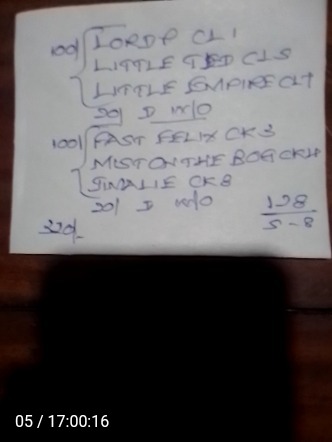 100/ LORD P CL 1
LITTLE TED CL5
LITTLE EMPIRE CL7
20/ D W/O
100/ FAST FELIX CK3
MIST ON THE BOG CK4
JINALIE CK8
20/ D W/O
320/-
128
5-8
05 / 17:00:16